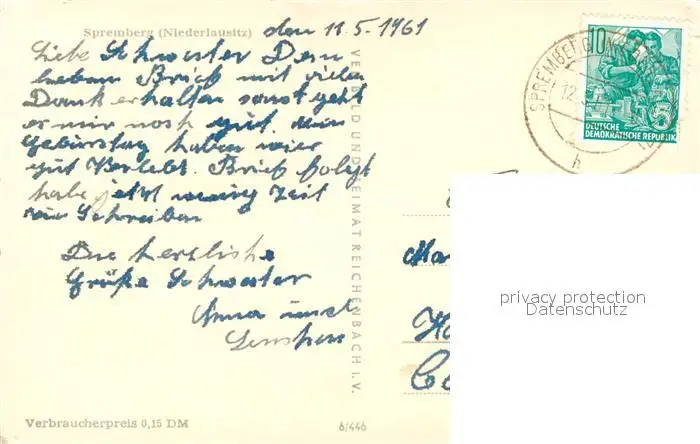 Spremberg (Niederlausitz)
den 11.5-1961
Liebe Schwester Dein
lieben Brief mit vielen
Dank erhalten sonst geht
es mir noch gut. mein
Geburstag haben wier
gut Verlebt. Brief folgt
habe jetzt wenig Zeit
zum Schreiben
Die herzliche
Grüße Schwester
Anna und
VERLAG BILD UND HEIMAT REICHENBACH I. V.
Verbraucherpreis 0,15 DM
6/446
SPREMBERG
12.
h
10
5
DEUTSCHE
DEMOKRATISCHE REPUBLIK
privacy protection
Datenschutz